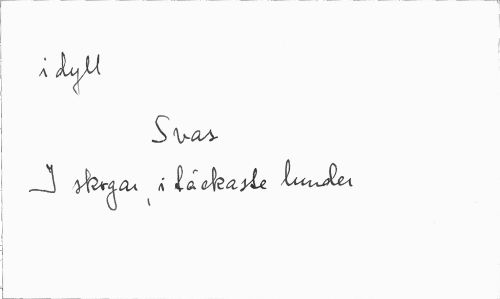 idyll
Svas
I skogar, i täckaste lunder